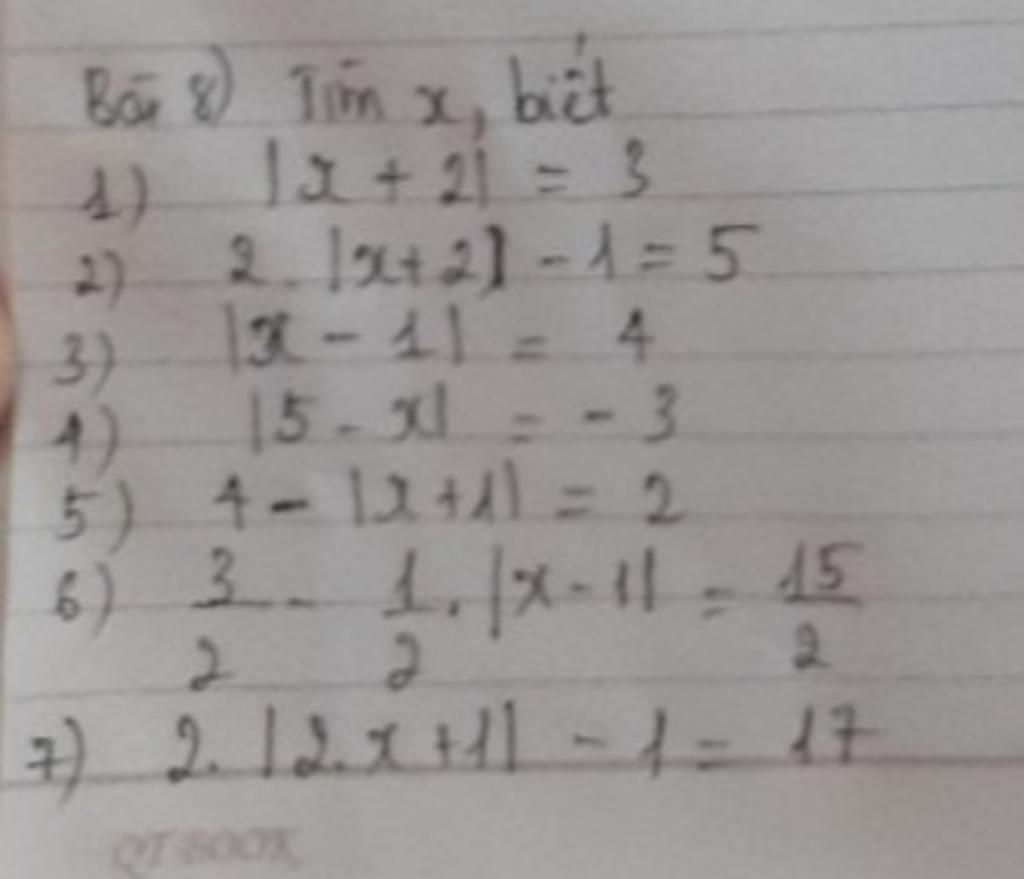 Bài 8) Tìm x, biết
1) |x + 2| = 3
2) 2. |x+2| - 1 = 5
3) |x - 1| = 4
4) |5 - x| = - 3
5) 4 - |x+1| = 2
6) 3/2 - 1/2 . |x - 1| = 15/2
7) 2. |2.x +1| - 1 = 17
QT BOOK